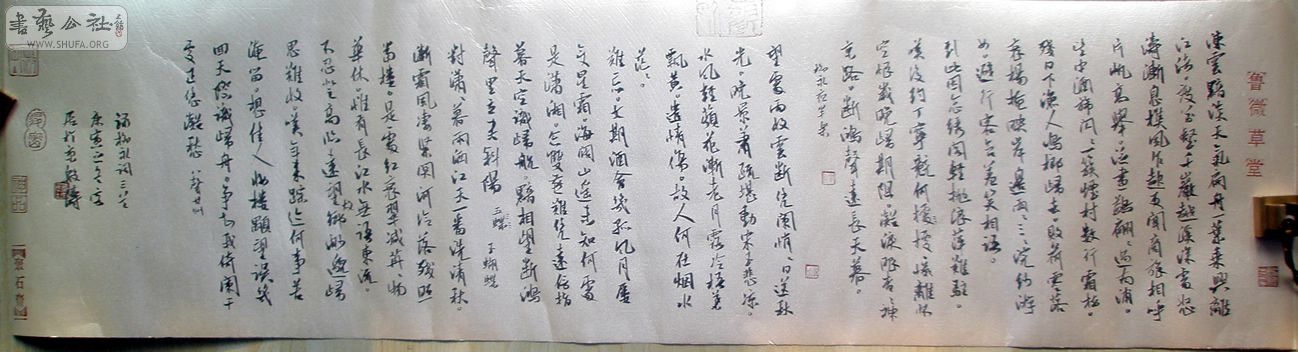 魯微草堂
凍雲黯淡天氣。扁舟一葉。乘興離
江渚。度萬壑千巖。越溪深處。怒
濤漸息。樵風乍起。更聞商旅相呼
片帆高舉。泛畫鷁。翩翩過南浦。
望中酒旆閃閃。一簇煙村。數行霜樹。
殘日下。漁人鳴榔歸去。敗荷零落
衰楊掩映。岸邊兩兩三三。浣紗游
女。避行客。含羞笑相語。
到此因念。繡閣輕拋。浪萍難駐。
嘆後約丁寧竟何據。慘離懷
空恨歲晚歸期阻。凝淚眼。杳杳神
京路。斷鴻聲遠長天暮。
柳永夜半樂
望處雨收雲斷。憑闌悄悄。目送秋
光。晚景蕭疏。堪動宋玉悲涼。
水風輕。蘋花漸老。月露冷。梧葉
飄黃。遣情傷。故人何在。煙水
茫茫。
難忘。文期酒會。幾孤風月。屢
變星霜。海闊山遙。未知何處
是瀟湘。念雙燕。難憑遠信。指
暮天。空識歸航。黯相望。斷鴻
聲里。立盡斜陽。玉蝴蝶
對瀟瀟暮雨灑江天。一番洗清秋。
漸霜風淒緊。關河冷落。殘照
當樓。是處紅衰翠減。苒苒物
華休。惟有長江水。無語東流。
不忍登高臨遠。望故鄉渺邈。歸
思難收。嘆年來蹤跡。何事苦
淹留。想佳人。妝樓顒望。誤幾
回天際識歸舟。爭知我倚闌干
處。正恁凝愁。八聲甘州
錄柳永詞三首
庚寅
書藝公社
WWW.SHUFA.ORG